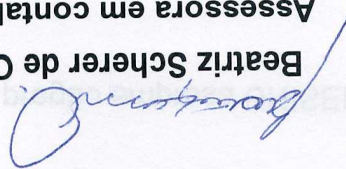 Beatriz Scherer de C
Assessora em contab